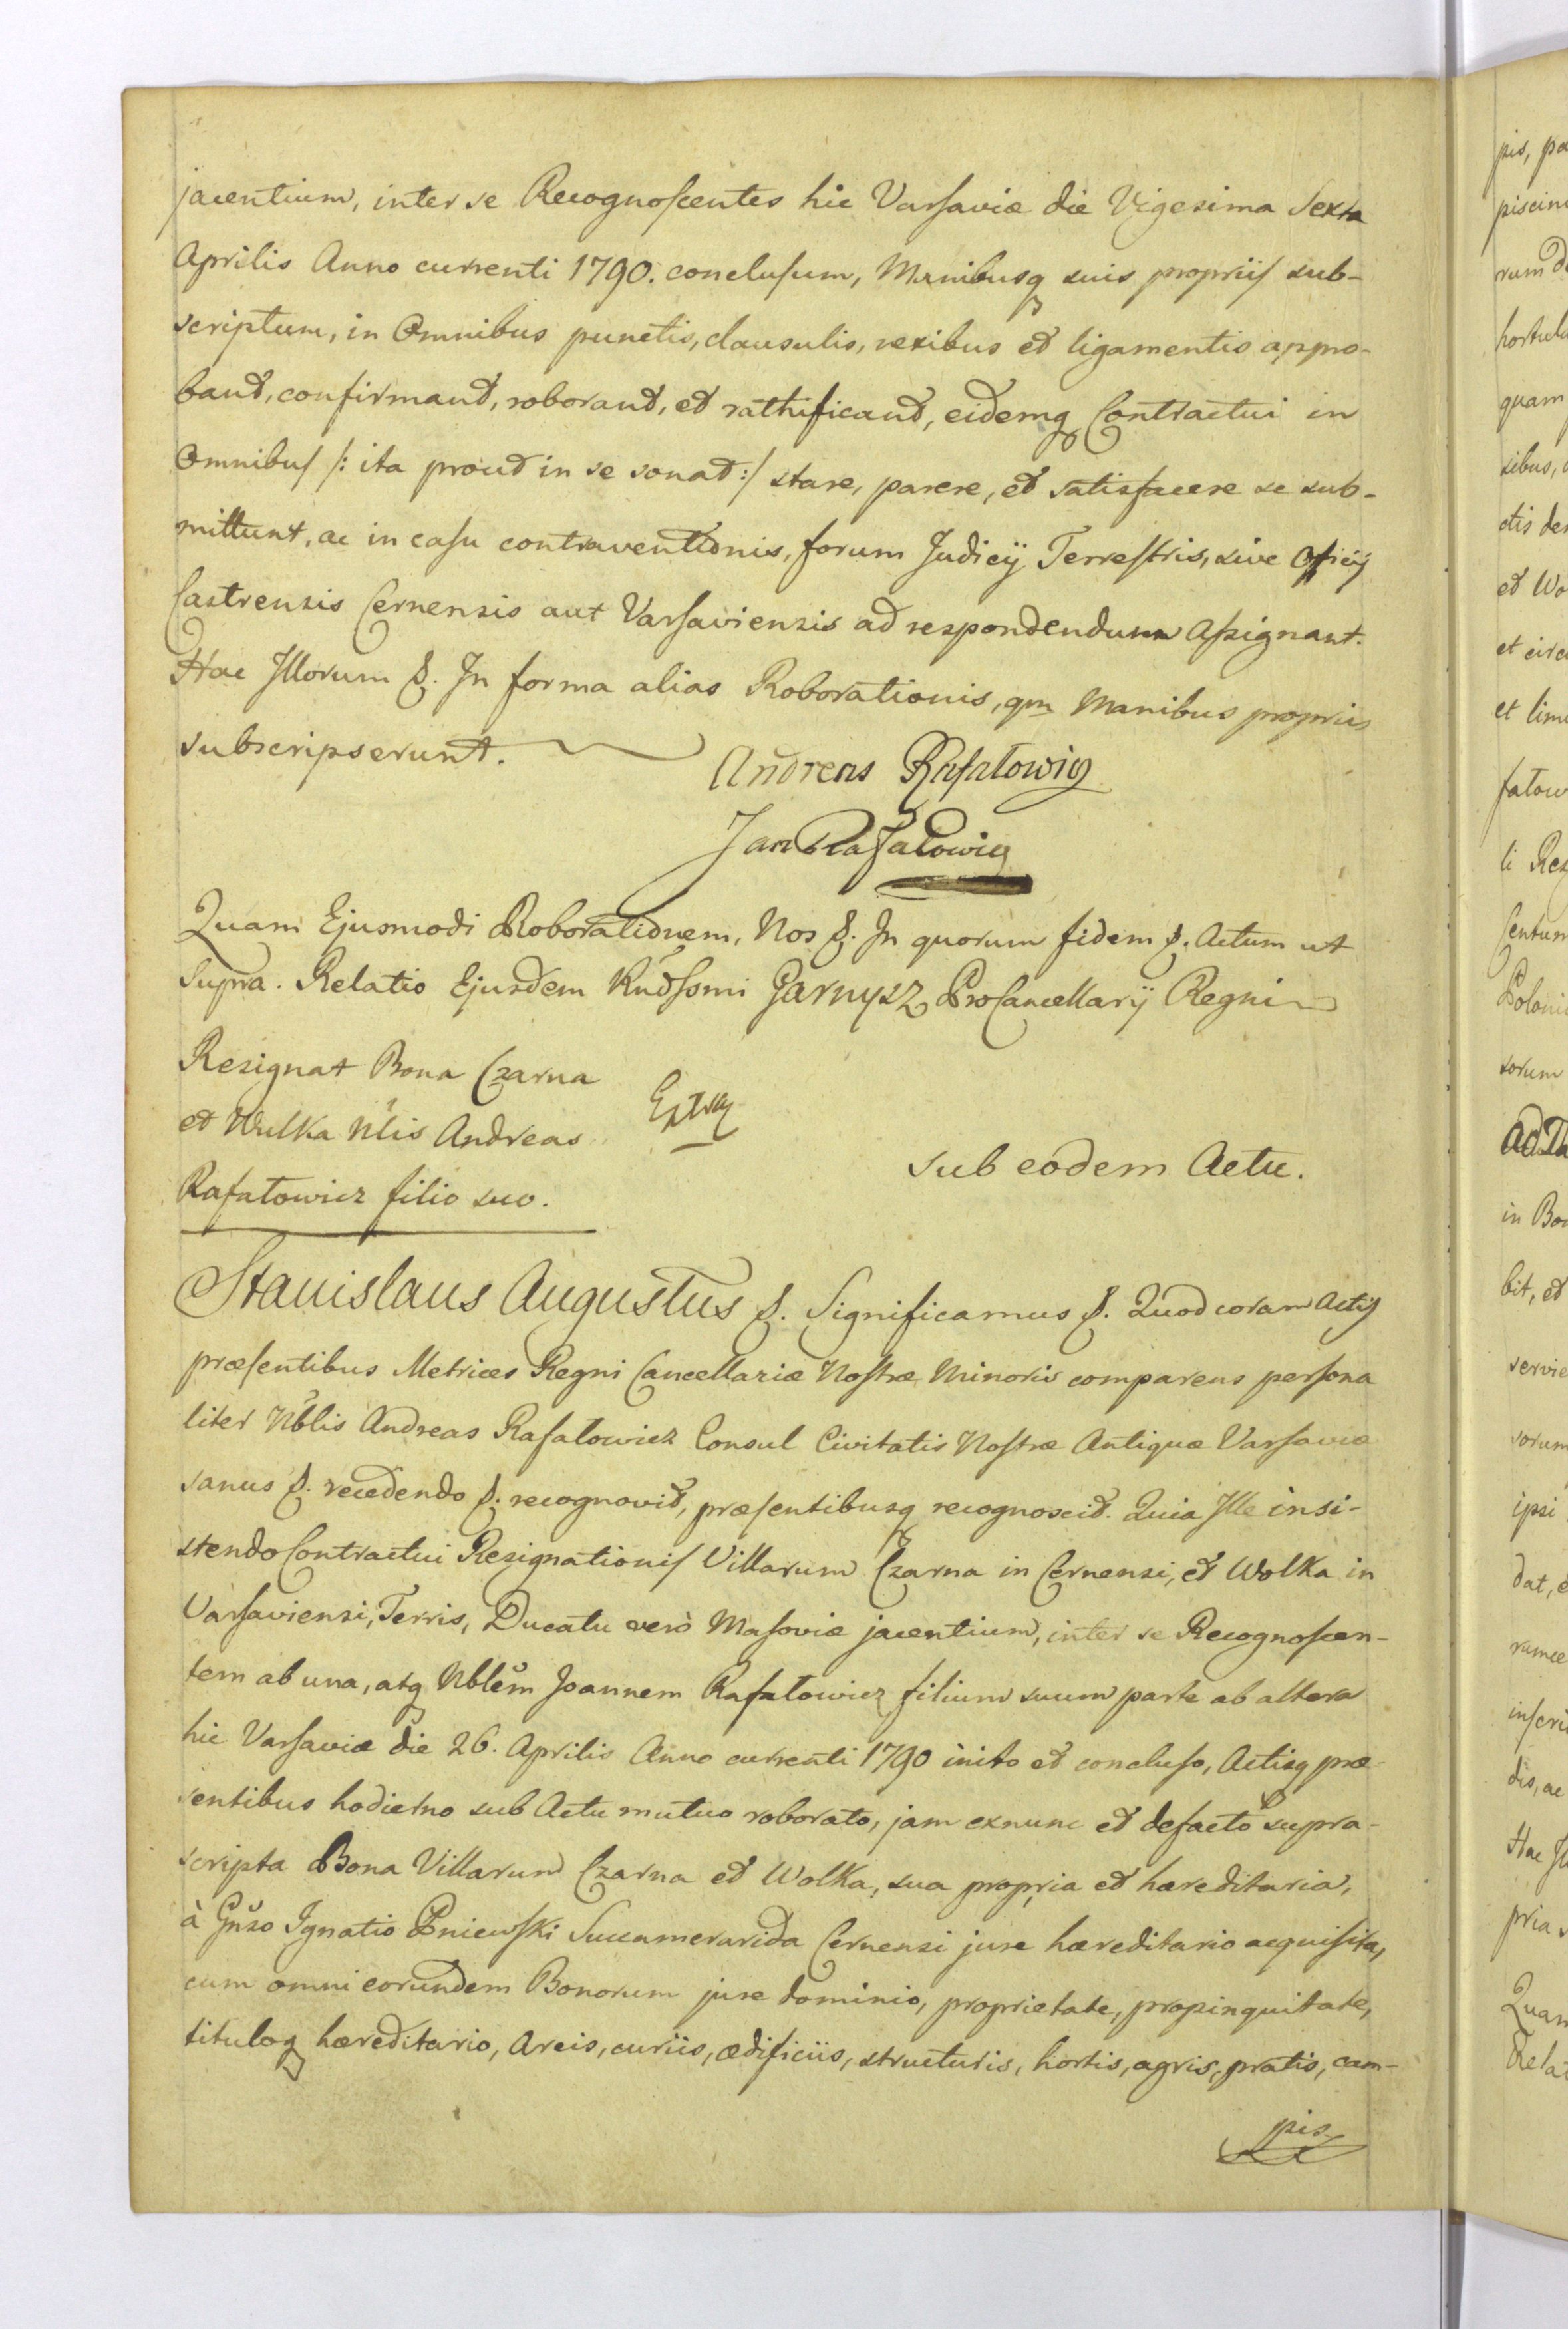 jacentium, inter se Recognoscentes hic Varsaviæ die Vigesima Sexta
Aprilis Anno currenti 1790. conclusum, Manibusq suis propriis sub-
scriptum, in Omnibus punctis, clausulis, nexibus et ligamentis appro-
bant, confirmant, roborant, et rathificant, eidemq Contractui in
Omnibus /: ita prout in se sonat :/ stare, parere, et satisfacere se sub-
mittunt, ac in casu contraventionis, forum Judicij Terrestris, sive Officij
Castrensis Cernensis aut Varsaviensis ad respondendum assignant.
Hac Illorum &. In forma alias Roborationis, qm Manibus propriis
subscripserunt.
Andreas Rafałowicz
Jan Rafałowicz
Quam Ejusmodi Roborationem, Nos &. In quorum fidem &. Actum ut
supra. Relatio Ejusdem Rndssmi Garnysz ProCancellarij Regni
Resignat Bona Czarna
et Wulka Nlis Andreas
Rafałowicz filio suo.
Extr
Sub eodem Actu.
Stanislaus Augustus &. Significamus &. Quod coram Actis
præsentibus Metrices Regni Cancellariæ Nostræ Minoris comparens persona
liter Nblis Andreas Rafałowicz Consul Civitatis Nostræ Antiquæ Varsaviæ
sanus &. recedendo &. recognovit, præsentibusq recognoscit. Quia Ille insi-
stendo Contractui Resignationis Villarum Czarna in Cernensi, et Wolka in
Varsaviensi, Terris, Ducatu verò Masoviæ jacentium, inter se Recognoscen-
tem ab una, atq Nblem Joannem Rafałowicz filium suum parte ab altera
hic Varsaviæ die 26. Aprilis Anno currenti 1790 inito et concluso, Actisq præ-
sentibus hodierno sub Actu mutuo roborato, jam exnunc et defacto supra-
scripta Bona Villarum Czarna et Wolka, sua propria et hæreditaria,
à Gnso Ignatio Pniewski Succamerarida Cernensi jure hæreditario acquisita,
cum omni eorundem Bonorum jure dominio, proprietate, propinquitate,
tituloq hæreditario, Areis, curiis, ædificiis, structuris, hortis, agris, pratis, cam-
pis